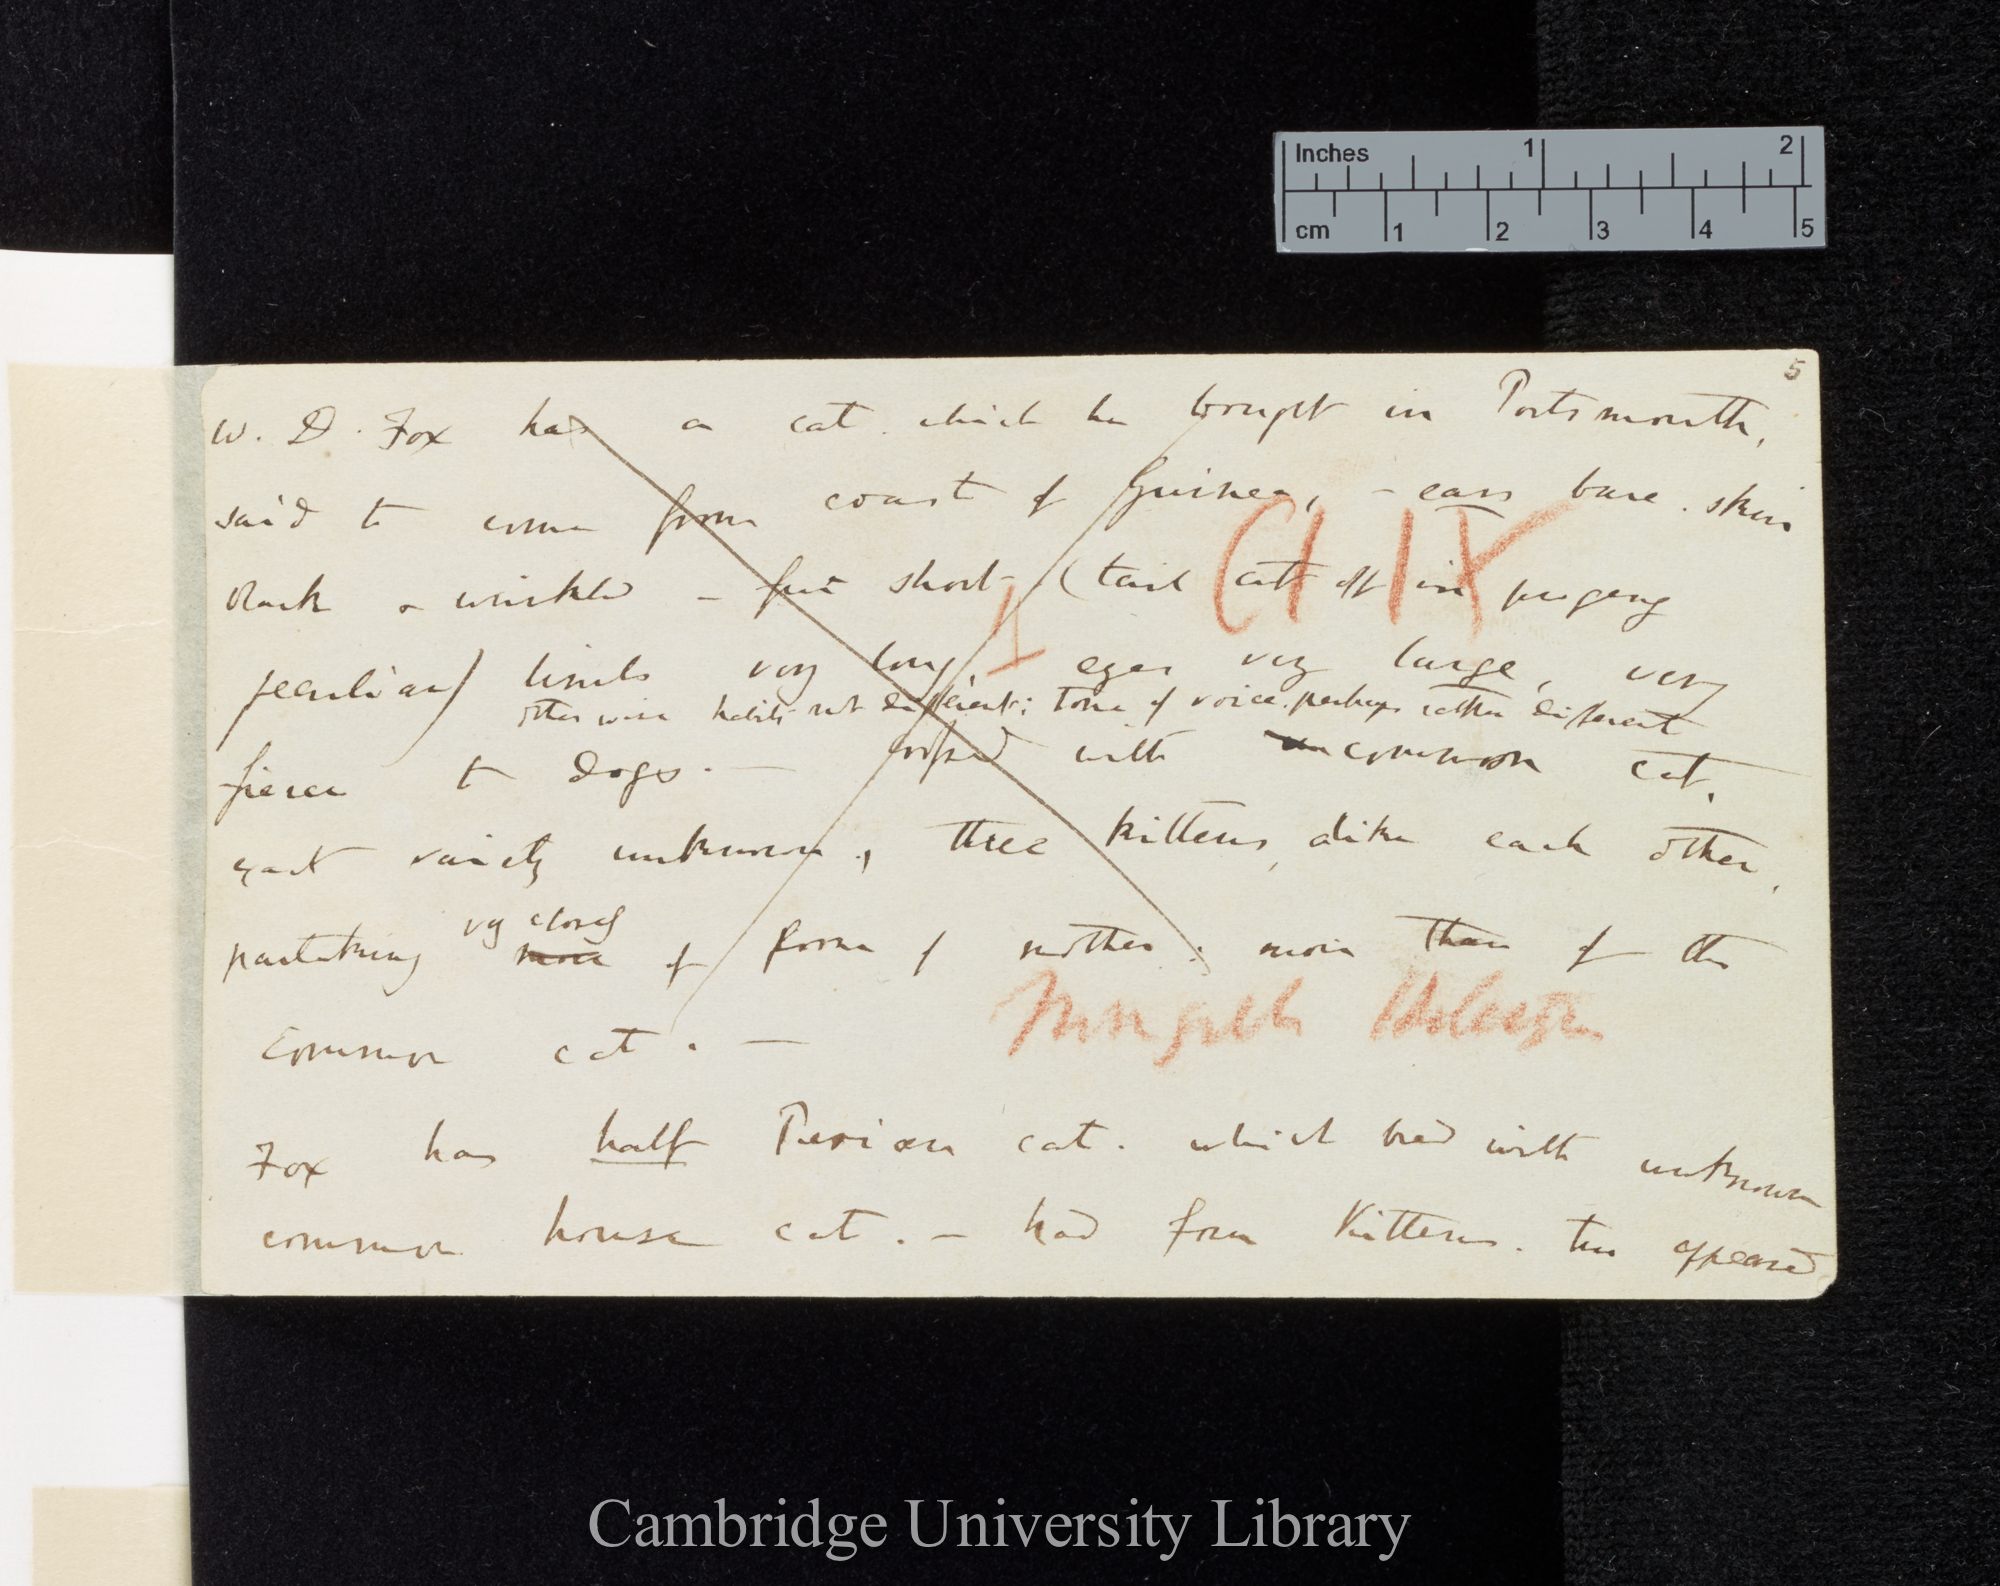 5
W. D. Fox has a cat which he bought in Portsmouth,
said to come from coast of Guinea, - ears bare. skin
black & wrinkled - fur short - (tail cut off in progeny
CH IX
peculiar) limbs very long, eyes very large, very
otherwise habits not different; tone of voice perhaps rather different
fierce to dogs. — crossed with common cat,
exact variety unknown, three kittens, alike each other,
partaking very closely more of form of mother; more than of the
common cat. —
Mongrels
Fox has half Persian cat. which bred with unknown
common house cat. - had four kittens. two appeared
Inches 1 2
cm 1 2 3 4 5
Cambridge University Library